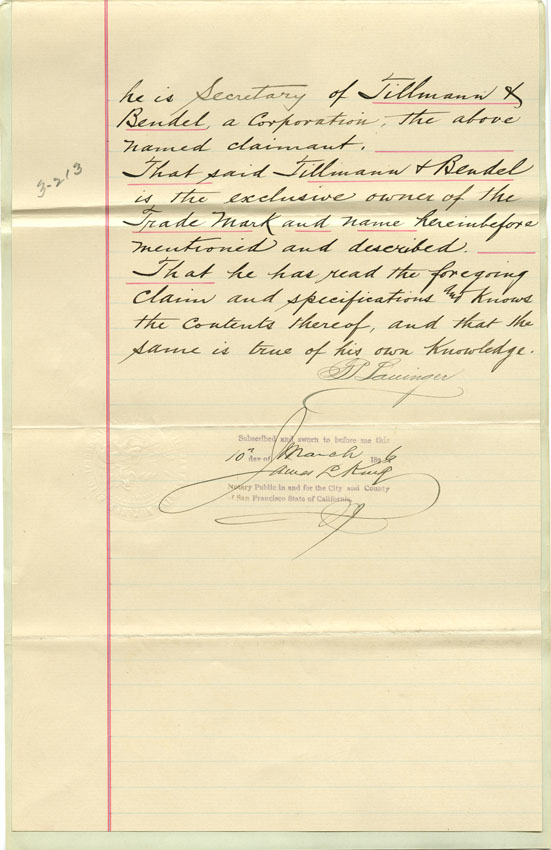 he is Secretary of Tillmann &
Bendel, a Corporation, the above
named claimant.
That said Tillmann & Bendel
is the exclusive owner of the
Trade Mark and name hereinbefore
mentioned and described.
That he has read the foregoing
claim and specifications and knows
the contents thereof, and that the
same is true of his own knowledge.
3-213
Subscribed and sworn to before me this
10th day of March 1896
James L King
Notary Public in and for the City and County
of San Francisco State of California.